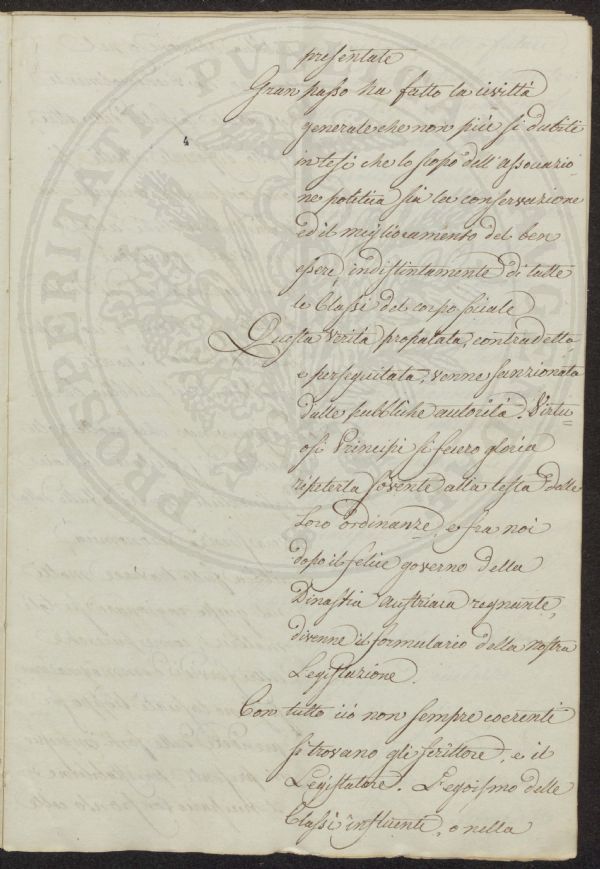 presentate
Gran passo ha fatto la civiltà
generale che non più si dubiti
in tesi che lo scopo dell'associazio-
ne politica sia la conservazione
ed il miglioramento del ben
essere indistintamente di tutte
le Classi del corpo sociale
Questa verità propalata, contradetta
e perseguitata, venne sanzionata
dalle pubbliche autorità. Virtu=
osi Principi si fecero gloria
ripeterla sovente alla testa delle
Loro ordinanze, e fra noi
dopo il felice governo della
Dinastia Austriaca regnante,
divenne il formulario della nostra
Legislazione.
Con tutto ciò non sempre coerenti
si trovano gli scrittore, e il
Legislatore. L'egoismo delle
Classi influenti, o nella
4
PROSPERITATI PUBLICAE